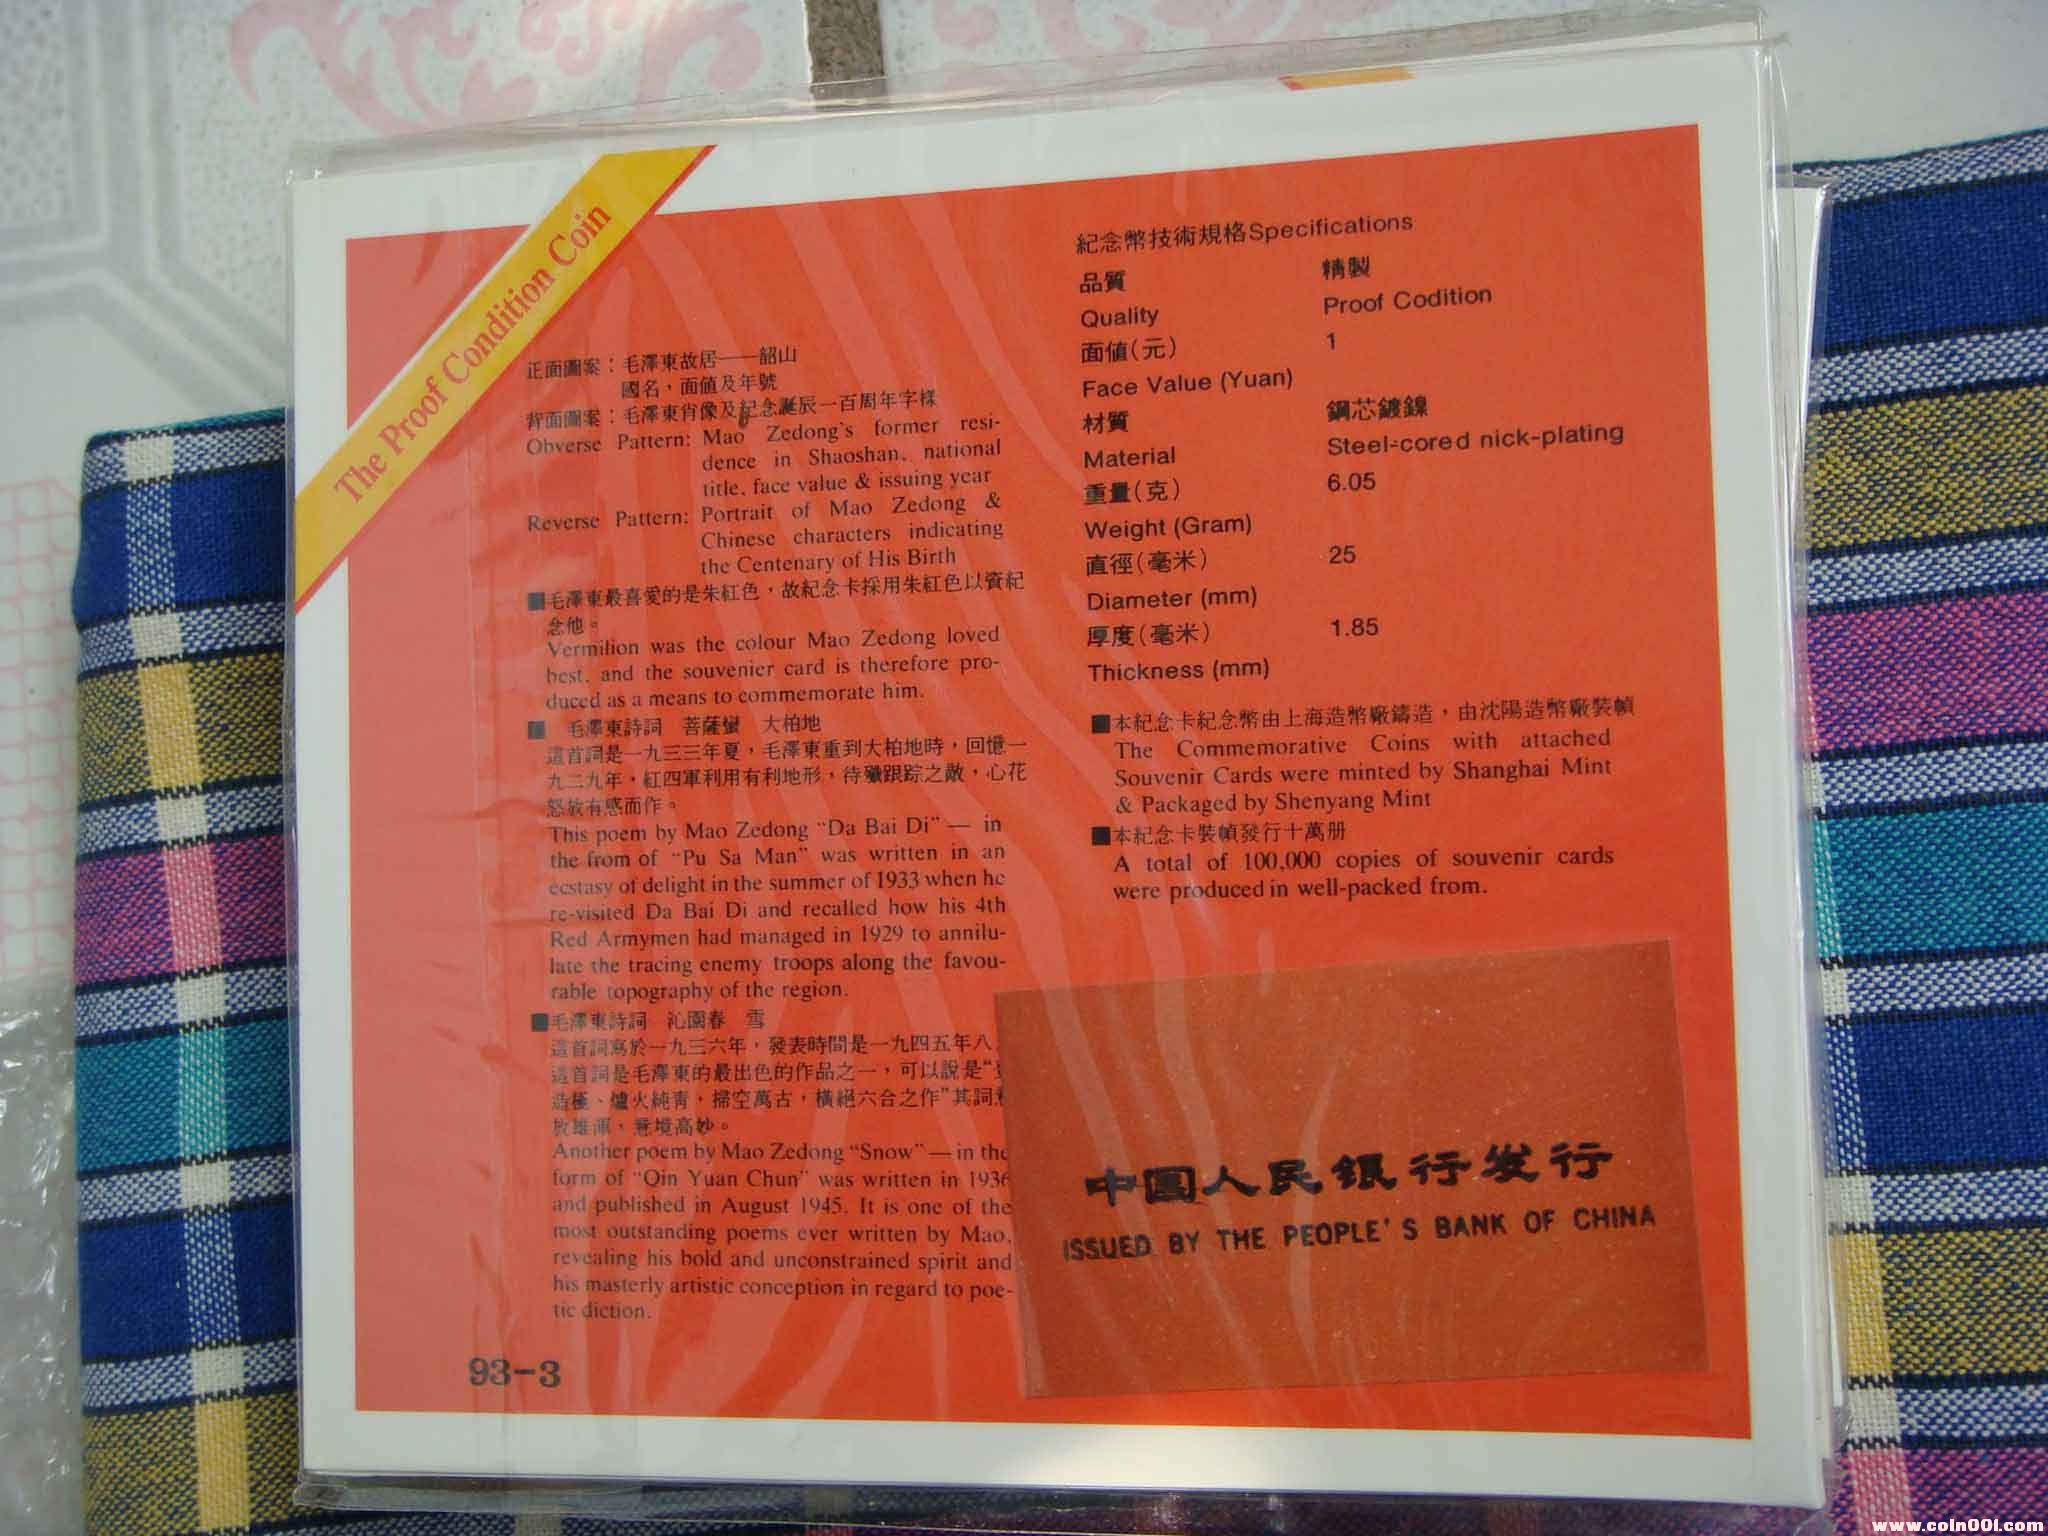 The Proof Condition Coin
正面圖案：毛澤東故居——韶山
國名，面値及年號
背面圖案：毛澤東肖像及紀念誕辰一百周年字樣
Obverse Pattern: Mao Zedong's former resi-
dence in Shaoshan, national
title, face value & issuing year
Reverse Pattern: Portrait of Mao Zedong &
Chinese characters indicating
the Centenary of His Birth
■毛澤東最喜愛的是朱紅色，故紀念卡採用朱紅色以資紀
念他。
Vermilion was the colour Mao Zedong loved
best, and the souvenier card is therefore pro-
duced as a means to commemorate him.
■ 毛澤東詩詞 菩薩蠻 大柏地
這首詞是一九三三年夏，毛澤東重到大柏地時，回憶一
九二九年，紅四軍利用有利地形，待殲跟踪之敵，心花
怒放有感而作。
This poem by Mao Zedong “Da Bai Di” — in
the from of “Pu Sa Man” was written in an
ecstasy of delight in the summer of 1933 when he
re-visited Da Bai Di and recalled how his 4th
Red Armymen had managed in 1929 to annilu-
late the tracing enemy troops along the favou-
rable topography of the region.
■毛澤東詩詞 沁園春 雪
這首詞寫於一九三六年，發表時間是一九四五年八
這首詞是毛澤東的最出色的作品之一，可以說是“
造極、爐火純靑，掃空萬古，橫絕六合之作”其詞
放雄渾，意境高妙。
Another poem by Mao Zedong “Snow” — in the
form of “Qin Yuan Chun” was written in 1936
and published in August 1945. It is one of the
most outstanding poems ever written by Mao,
revealing his bold and unconstrained spirit and
his masterly artistic conception in regard to poe-
tic diction.
93-3
紀念幣技術規格Specifications
品質 精製
Quality Proof Codition
面値(元) 1
Face Value (Yuan)
材質 鋼芯鍍鎳
Material Steel-cored nick-plating
重量(克) 6.05
Weight (Gram)
直徑(毫米) 25
Diameter (mm)
厚度(毫米) 1.85
Thickness (mm)
■本紀念卡紀念幣由上海造幣廠鑄造，由沈陽造幣廠裝幀
The Commemorative Coins with attached
Souvenir Cards were minted by Shanghai Mint
& Packaged by Shenyang Mint
■本紀念卡裝幀發行十萬册
A total of 100,000 copies of souvenir cards
were produced in well-packed from.
中国人民银行发行
ISSUED BY THE PEOPLE'S BANK OF CHINA
www.coin001.com